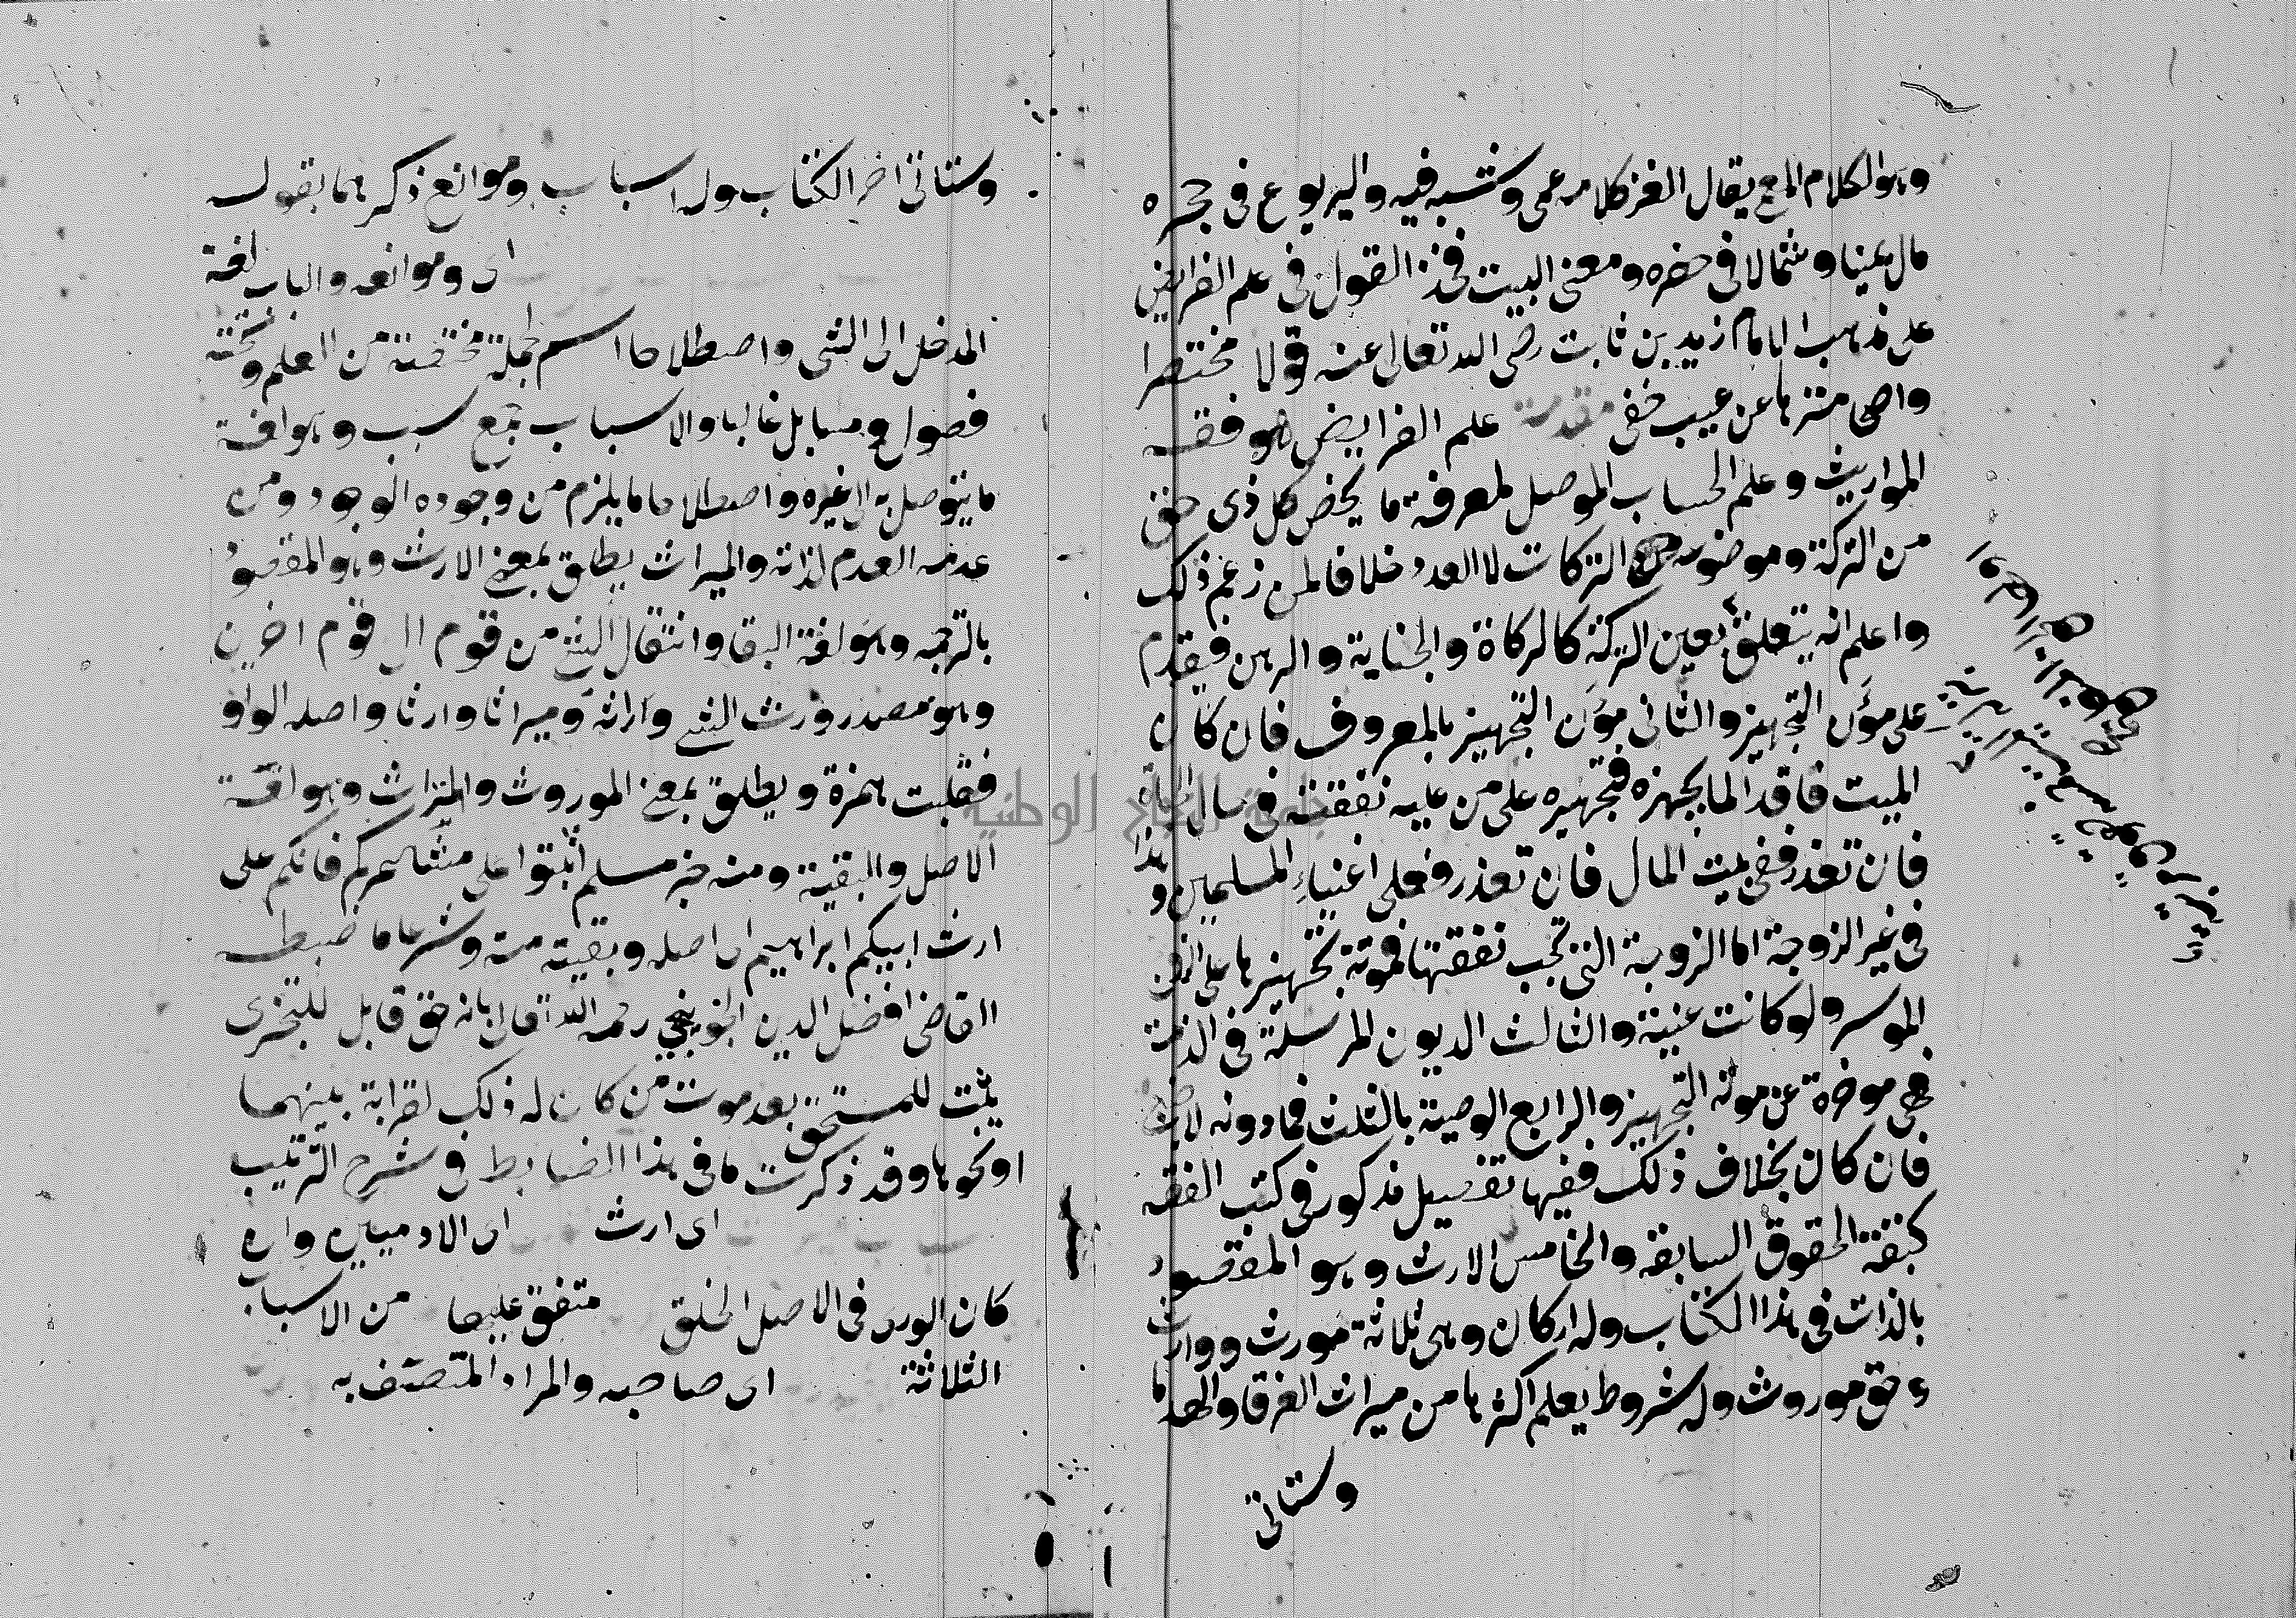 وهو الكلام المعمى يقال الغز كلامه عمى وشبه فيه واليربوع فى جحره
مال يمينا وشمالا فى حفره ومعنى البيت فخذ القول فى علم الفرايض
على مذهب الامام زيد بن ثابت رضى الله تعالى عنه قولا مختصرا
واضحا منزها عن عيب خفى مقدمة علم الفرايض هو فقه
المواريث وعلم الحساب الموصل لمعرفة ما يخص كل ذى حق
من التركة وموضوعه التركات لا العدد خلافا لمن زعم ذلك
واعلم انه يتعلق بعين التركة كالزكاة والجناية والرهن فيقدم
على مؤن التجهيز والثانى مؤن التجهيز بالمعروف فان كان
الميت فاقدا لما يجهزه فتجهيزه على من عليه نفقته فى حال الحياة
فان تعذر ففى بيت المال فان تعذر فعلى اغنياء المسلمين وهذا
فى غير الزوجة اما الزوجة التى تجب نفقتها فمونة تجهيزها على الزوج
الموسر ولو كانت غنية والثالث الديون المرسلة فى الذمة
فهى موخرة عن مونة التجهيز والرابع الوصية بالثلث فما دونه
فان كان بخلاف ذلك ففيها تفصيل مذكور فى كتب الفقه
كبقية الحقوق السابقة والخامس الارث وهو المقصود
بالذات فى هذا الكتاب وله اركان وهى ثلاثة مورث ووارث
وحق موروث وله شروط يعلم اكثرها من ميراث الغرقا والهدما
وستاتى
وستاتى اخر الكتاب وله اسباب وموانع ذكرهما بقوله
اى وموانعه والباب لغة
المدخل الى الشى واصطلاحا اسم لجملة مختصة من العلم وتحته
فصول ومسايل غالبا والاسباب جمع سبب وهو لغة
ما يتوصل به الى غيره واصطلاحا ما يلزم من وجوده الوجود ومن
عدمه العدم لذاته والميراث يطلق بمعنى الارث وهو المقصود
بالترجمه وهو لغة البقا وانتقال الشئ من قوم الى قوم اخرين
وهو مصدر ورث الشئ وراثة وميراثا وارثا واصله الواو
فقلبت همزة ويطلق بمعنى الموروث والتراث وهو لغة
الاصل والبقية ومنه خبر مسلم اثبتوا على مشاعركم فانكم على
ارث ابيكم ابراهيم اى اصله وبقيته منه وشرعا ما ضبطه
القاضى افضل الدين الخونجى رحمه الله تعالى بانه حق قابل للتجزى
يثبت للمستحق بعد موت من كان له ذلك لقرابة بينهما
او نحوها وقد ذكرت ما فى هذا الضابط فى شرح الترتيب
اى ارث اى الادميين وان
كان الورى فى الاصل الخلق متفق عليها من الاسباب
الثلاثة اى صاحبه والمراد المتصف به